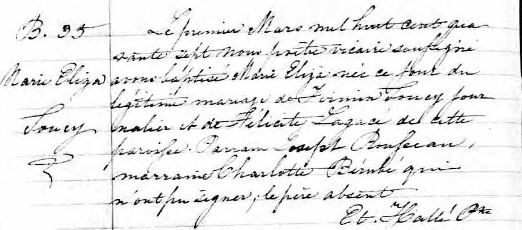 B. 35
Marie Eliza
Soucy
Le premier Mars mil huit cent qua
rante sept nous prêtre vicaire soussigné
avons baptisé Marie Eliza née ce jour du
légitime mariage de Firmin Soucy jour
nalier et de Félicité Lagacé de cette
paroisse. Parrain Joseph Rousseau,
marraine Charlotte Bérubé qui
n'ont pu signer; le père absent
Et. Hallé Ptre